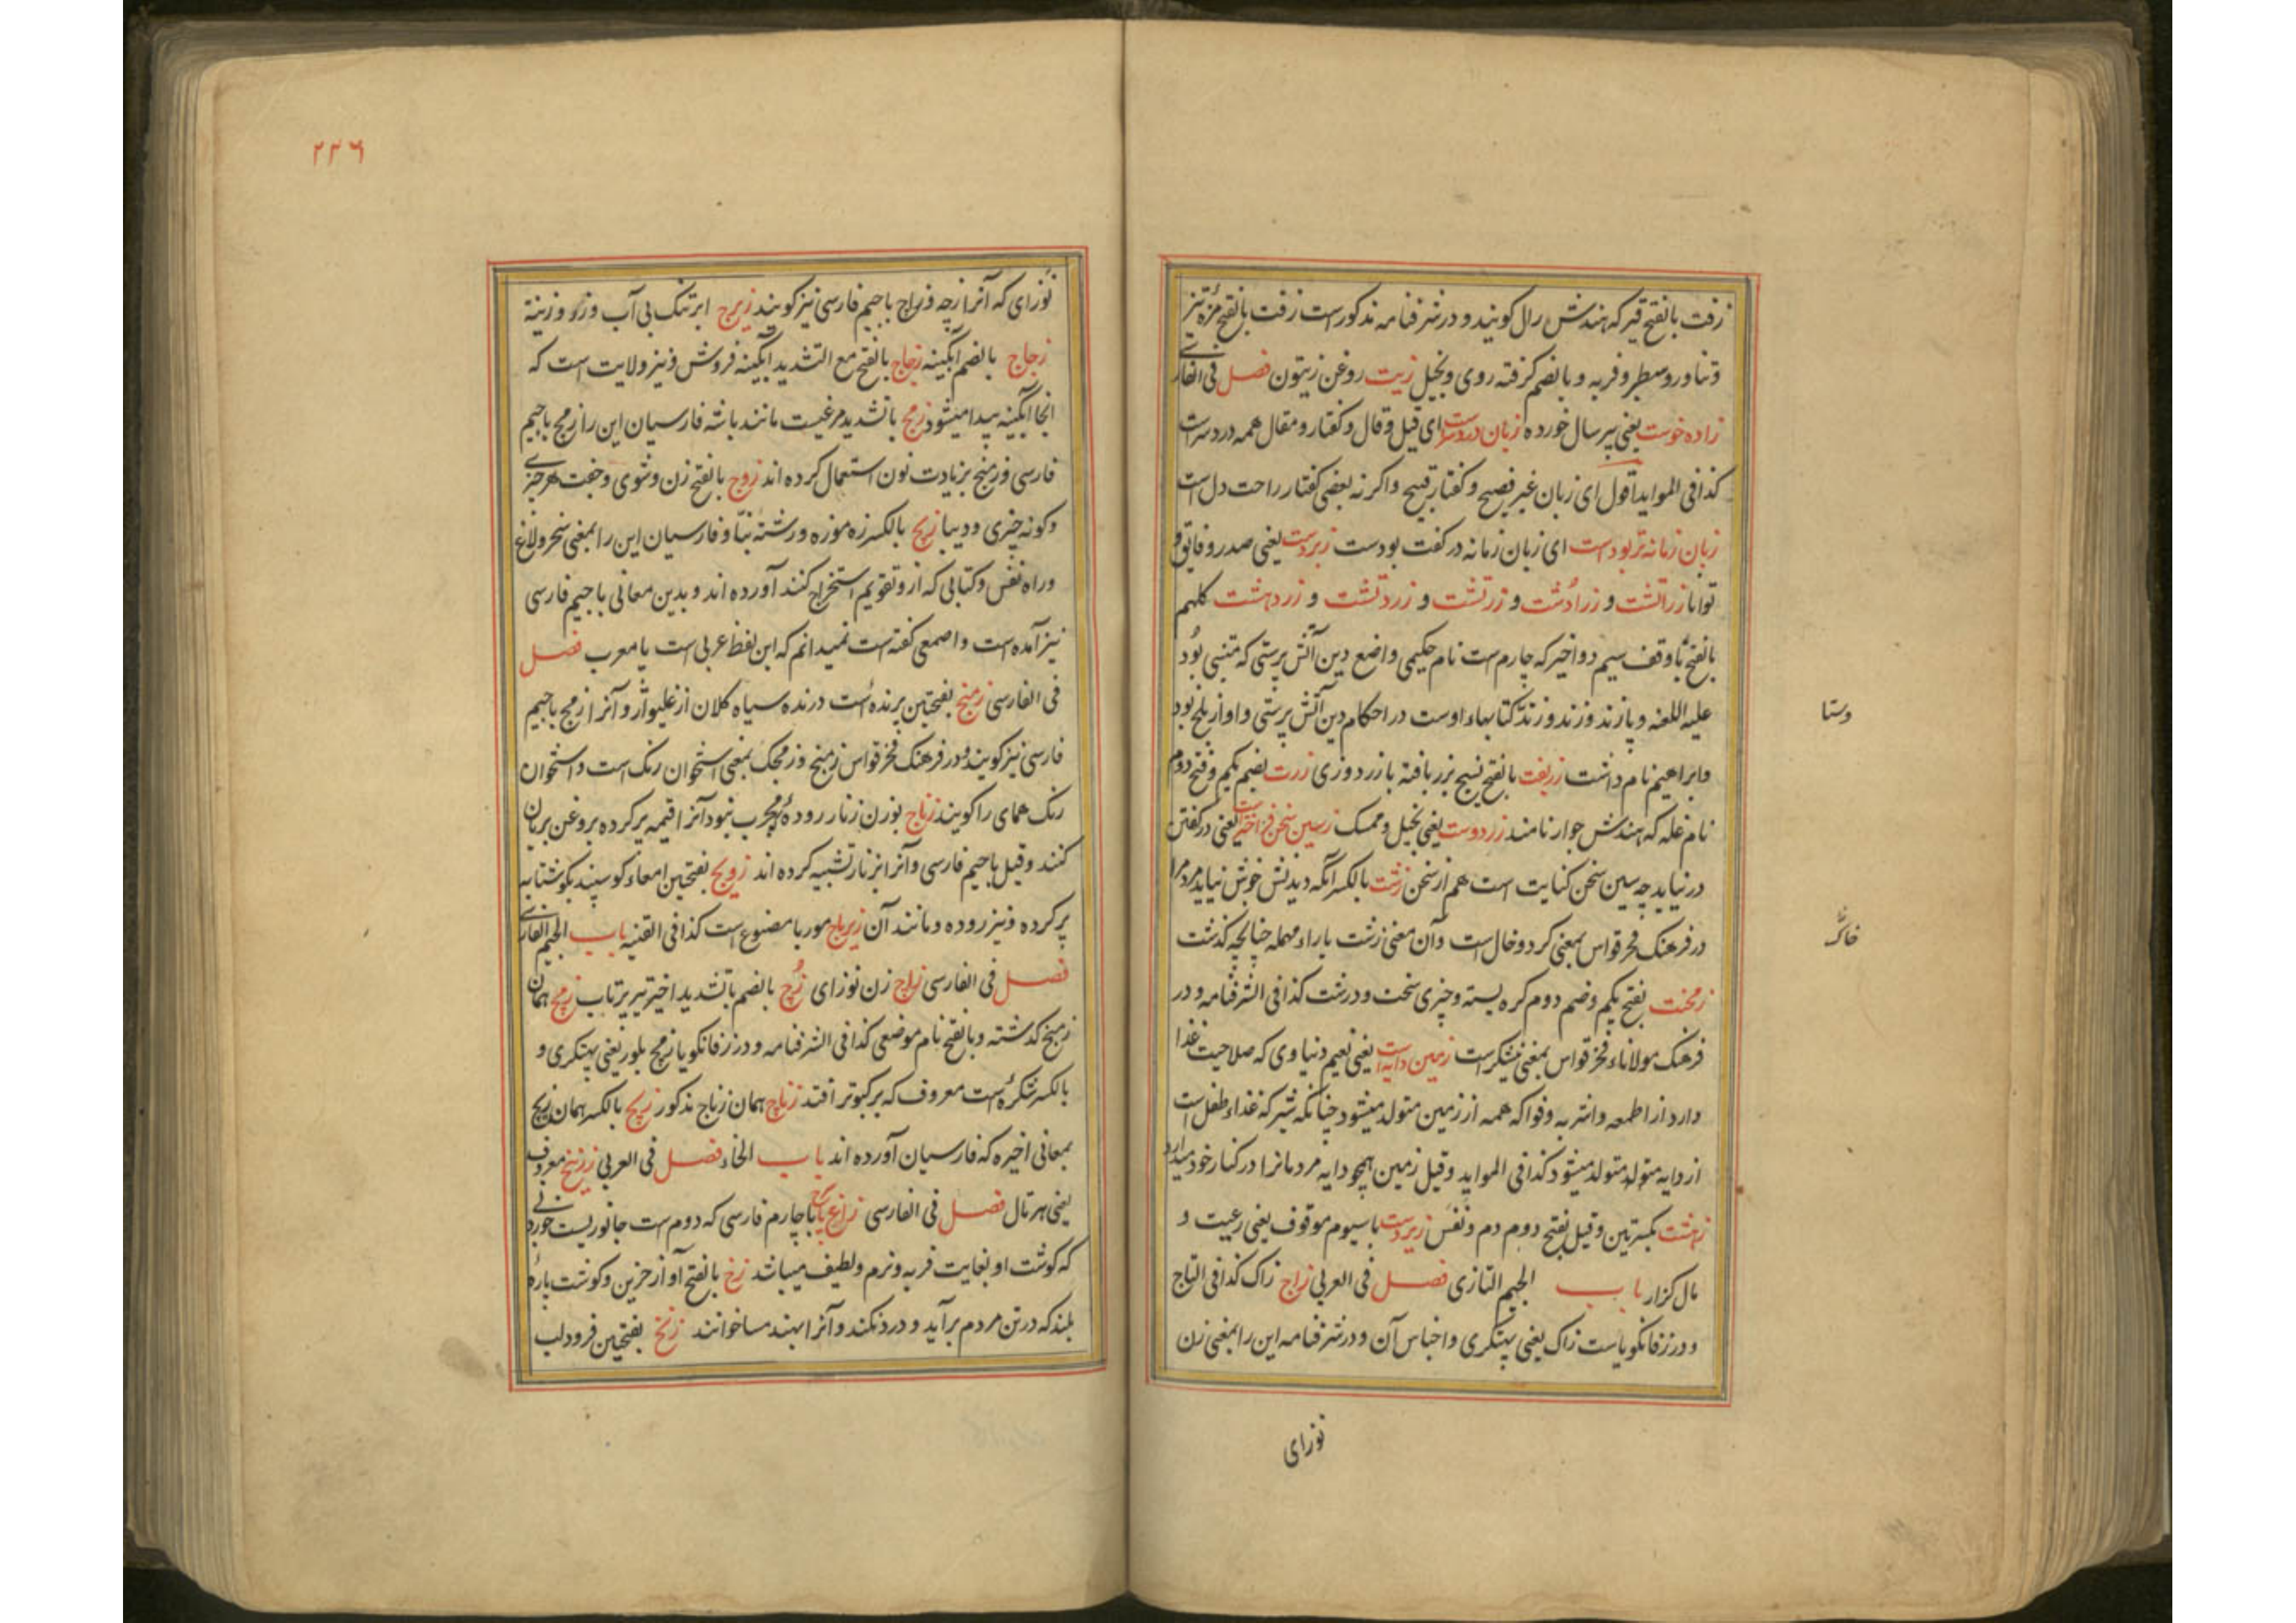 زفت بالفتح قیر که هندش رال کویند و در شرفنامه مذکورست زفت بالفتح مزهٔ تیز
وتناور وسطبر و فربه و بالضم کرفته روی وبخیل زیت روغن زیتون فصل فی الفارسی
زاده خوست یعنی پیر سال خورده زبان دردسرست ای قیل وقال و کفتار و مقال همه دردسرست
کذا فی الموایداقول ای زبان غیر فصیح و کفتار قبیح واکرنه بعضی کفتار راحت دل است
زبان زمانه تر بودست ای زبان زمانه در کفت بودست زبردست یعنی صدر و فایق و
توانا زراتشت و زرادشت و زرتشت و زردتشت و زردهشت کلهم
بالفتح باوقف سیم دو اخیر که چارمست نام حکیمی واضع دین آتش پرستی که متنبی بود
علیه اللعنه و پازند و زند و زند کتابهاء اوست در احکام دین آتش پرستی و او از بلخ بود
وابراهیم نام داشت زربفت بالفتح نسیج بزر بافته بازردوزی زرت بضم یکم وفتح دوم
نام غله که هندش جوار نامند زردوست یعنی بخیل وممسک زسین سخن فراخترست یعنی در کفتن
در نیاید چه سین سخن کنایت است هم از سخن زشت بالکسر آنکه دیدنش خوش نیاید مردم را
در فرهنک فخر قواس بمعنی کرد و خال است وآن معنی زشت باراء مهمله چنانچه کذشت
زمخت بفتح یکم وضم دوم کره بسته وچیزی سخت و درشت کذا فی الشرفنامه و در
فرهنک مولاناء فخر قواس بمعنی نیشکرست زمین دایه است یعنی نعیم دنیاوی که صلاحیت غذا
دارد از اطعمه واشربه وفواکه همه از زمین متولد میشود چنانکه شیر که غذاء طفل است
از دایه متولد متولد میشود کذا فی المواید وقیل زمین همچو دایه مردمانرا در کنار خود میدارد
زهشت بکسرتین وقیل بفتح دوم دم ونفس زیردست باسیوم موقوف یعنی رعیت و
مال کزار باب الجیم التازی فصل فی العربی زاج زاک کذا فی التاج
و در زفانکویاست زاک یعنی پهتکری واجناس آن و در شرفنامه این را بمعنی زن
نوزای
وستا
خاک
۲۲۶
نوزای که آنرا زچه وزاج باجیم فارسی نیز کویند زبرج ابر تنک بی آب وزر و زینة
زجاج بالضم آبکینه زجاج بالفتح مع التشدید آبکینه فروش ونیز ولایت است که
انجا آبکینه پیدا میشود زمج باتشدید مرغیست مانند باشه فارسیان این را زمج باجیم
فارسی وزمنج بزیادت نون استعمال کرده اند زوج بالفتح زن وشوی وجفت هر چیزی
وکونه چیزی ودیبا زیج بالکسر زه موزه ورشته بنّا و فارسیان این را بمعنی سخر ولاغ
وراه نفس وکتابی که از و تقویم استخراج کنند آورده اند و بدین معانی باجیم فارسی
نیز آمده است واصمعی کفته است نمیدانم که این لفظ عربی است یا معرب فصل
فی الفارسی زمنج بفتحتین پرنده است درنده سیاه کلان از غلیواژ و آنرا زمج باجیم
فارسی نیز کویند و در فرهنک فخر قواس زمنج وزمجک بمعنی استخوان رنک است واستخوان
رنک همای را کویند زناج بوزن زنار رودهٔ چرب بود آنرا قیمه پر کرده بروغن بریان
کنند وقیل باجیم فارسی وآنرا بزنار تشبیه کرده اند زویج بفتحتین امعاء کوسپند بکوشتابه
پر کرده ونیز روده ومانند آن زیرباج موربا مصنوع است کذا فی القنیه باب الجیم الفارسی
فصل فی الفارسی زاج زن نوزای زج بالضم باتشدید اخیر تیر پرتاب زمج همان
زمنج کذشته وبالفتح نام موضعی کذا فی الشرفنامه و در زفانکویا زمج بلور یعنی پهتکری و
بالکسر شکره است معروف که بر کبوتر افتد زناج همان زناج مذکور زیج بالکسر همان زیج
بمعانی اخیره که فارسیان آورده اند باب الخاء فصل فی العربی زرنیخ معروف
یعنی هرتال فصل فی الفارسی زاغ پاخ باچارم فارسی که دوم ست جانوریست خوردنی
که کوشت او بغایت فربه ونرم ولطیف میباشد زخ بالفتح آواز حزین وکوشت پارهٔ
بلند که در تن مردم برآید و درد نکند وآنرا بهند مسا خوانند زنخ بفتحتین فرود لب